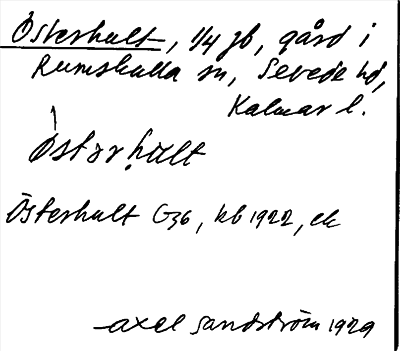 Österhult, 1/4 jb, gård i
Rumskulla sn, Sevede hd,
Kalmar l.
Östərhult
Österhult G36, kb 1922, ek
Axel Sandström 1929